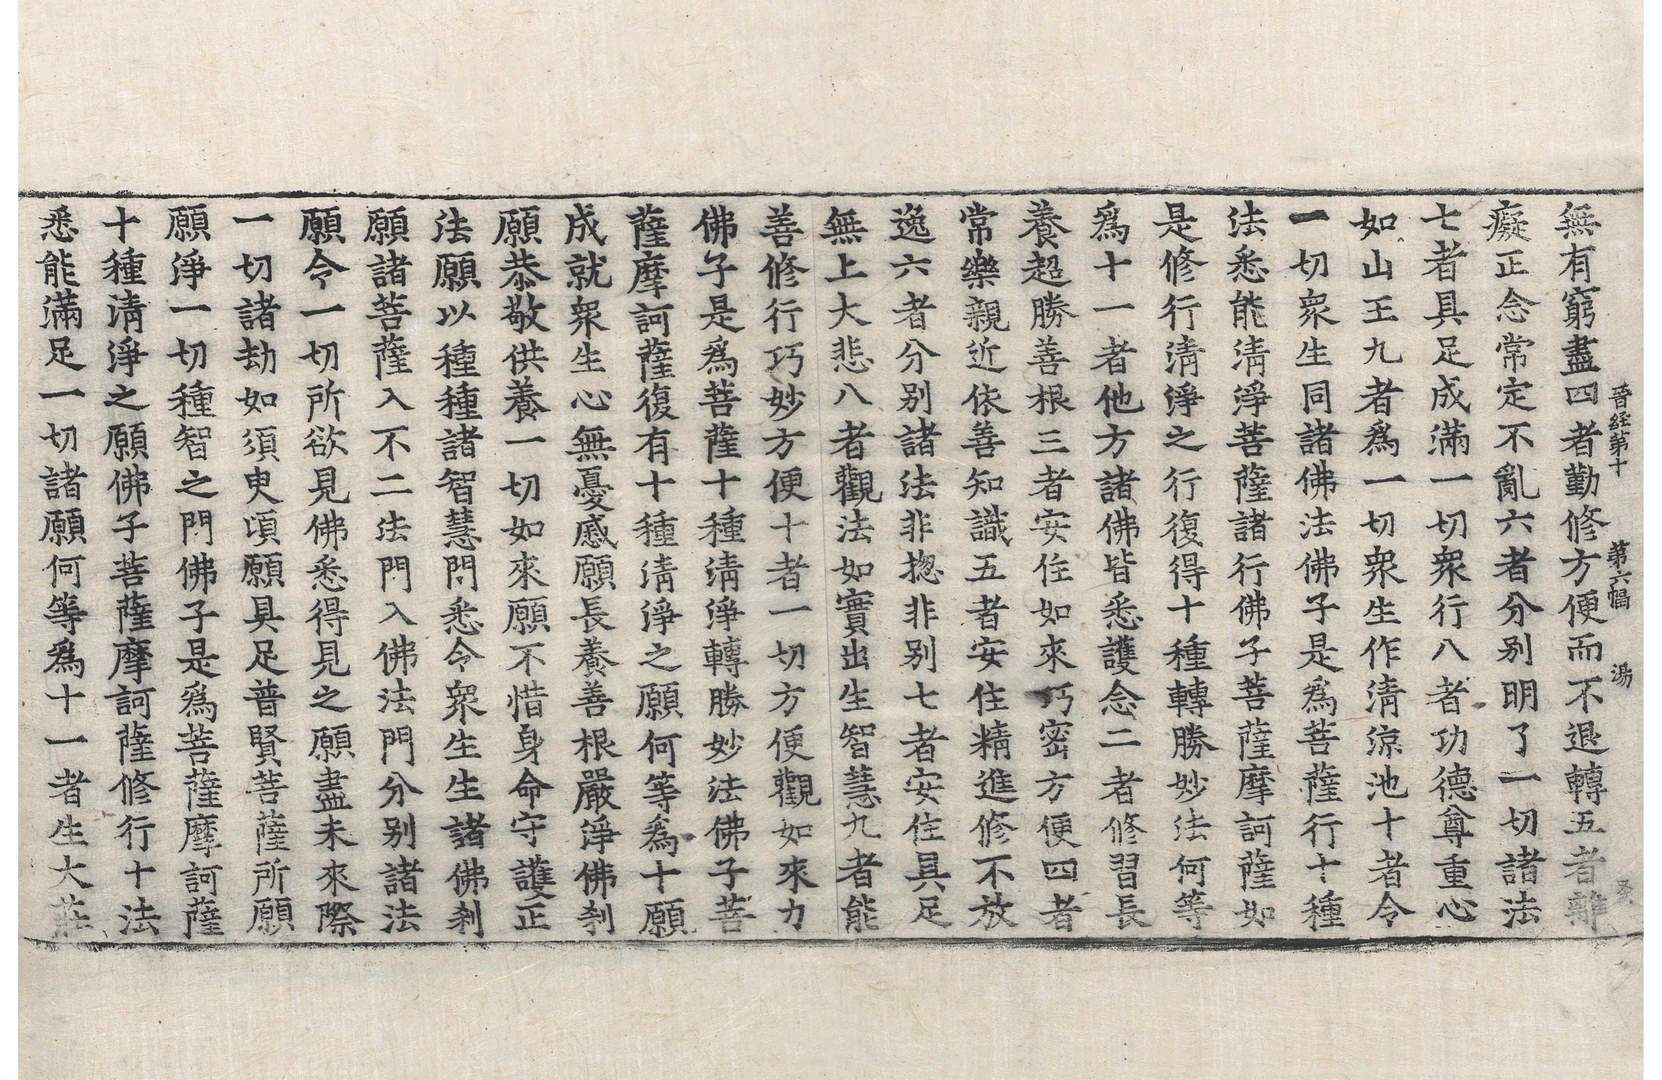 晉經第十 第六幅 湯
無有窮盡四者勤修方便而不退轉五者離
癡正念常定不亂六者分別明了一切諸法
七者具足成滿一切衆行八者功德尊重心
如山王九者爲一切衆生作清涼池十者令
一切衆生同諸佛法佛子是爲菩薩行十種
法悉能清淨菩薩諸行佛子菩薩摩訶薩如
是修行清淨之行復得十種轉勝妙法何等
爲十一者他方諸佛皆悉護念二者修習長
養超勝善根三者安住如來巧密方便四者
常樂親近依善知識五者安住精進修不放
逸六者分別諸法非揔非別七者安住具足
無上大悲八者觀法如實出生智慧九者能
善修行巧妙方便十者一切方便觀如來力
佛子是爲菩薩十種清淨轉勝妙法佛子菩
薩摩訶薩復有十種清淨之願何等爲十願
成就衆生心無憂慼願長養善根嚴淨佛刹
願恭敬供養一切如來願不惜身命守護正
法願以種種諸智慧門悉令衆生生諸佛刹
願諸菩薩入不二法門入佛法門分別諸法
願令一切所欲見佛悉得見之願盡未來際
一切諸劫如須臾頃願具足普賢菩薩所願
願淨一切種智之門佛子是爲菩薩摩訶薩
十種清淨之願佛子菩薩摩訶薩修行十法
悉能滿足一切諸願何等爲十一者生大莊